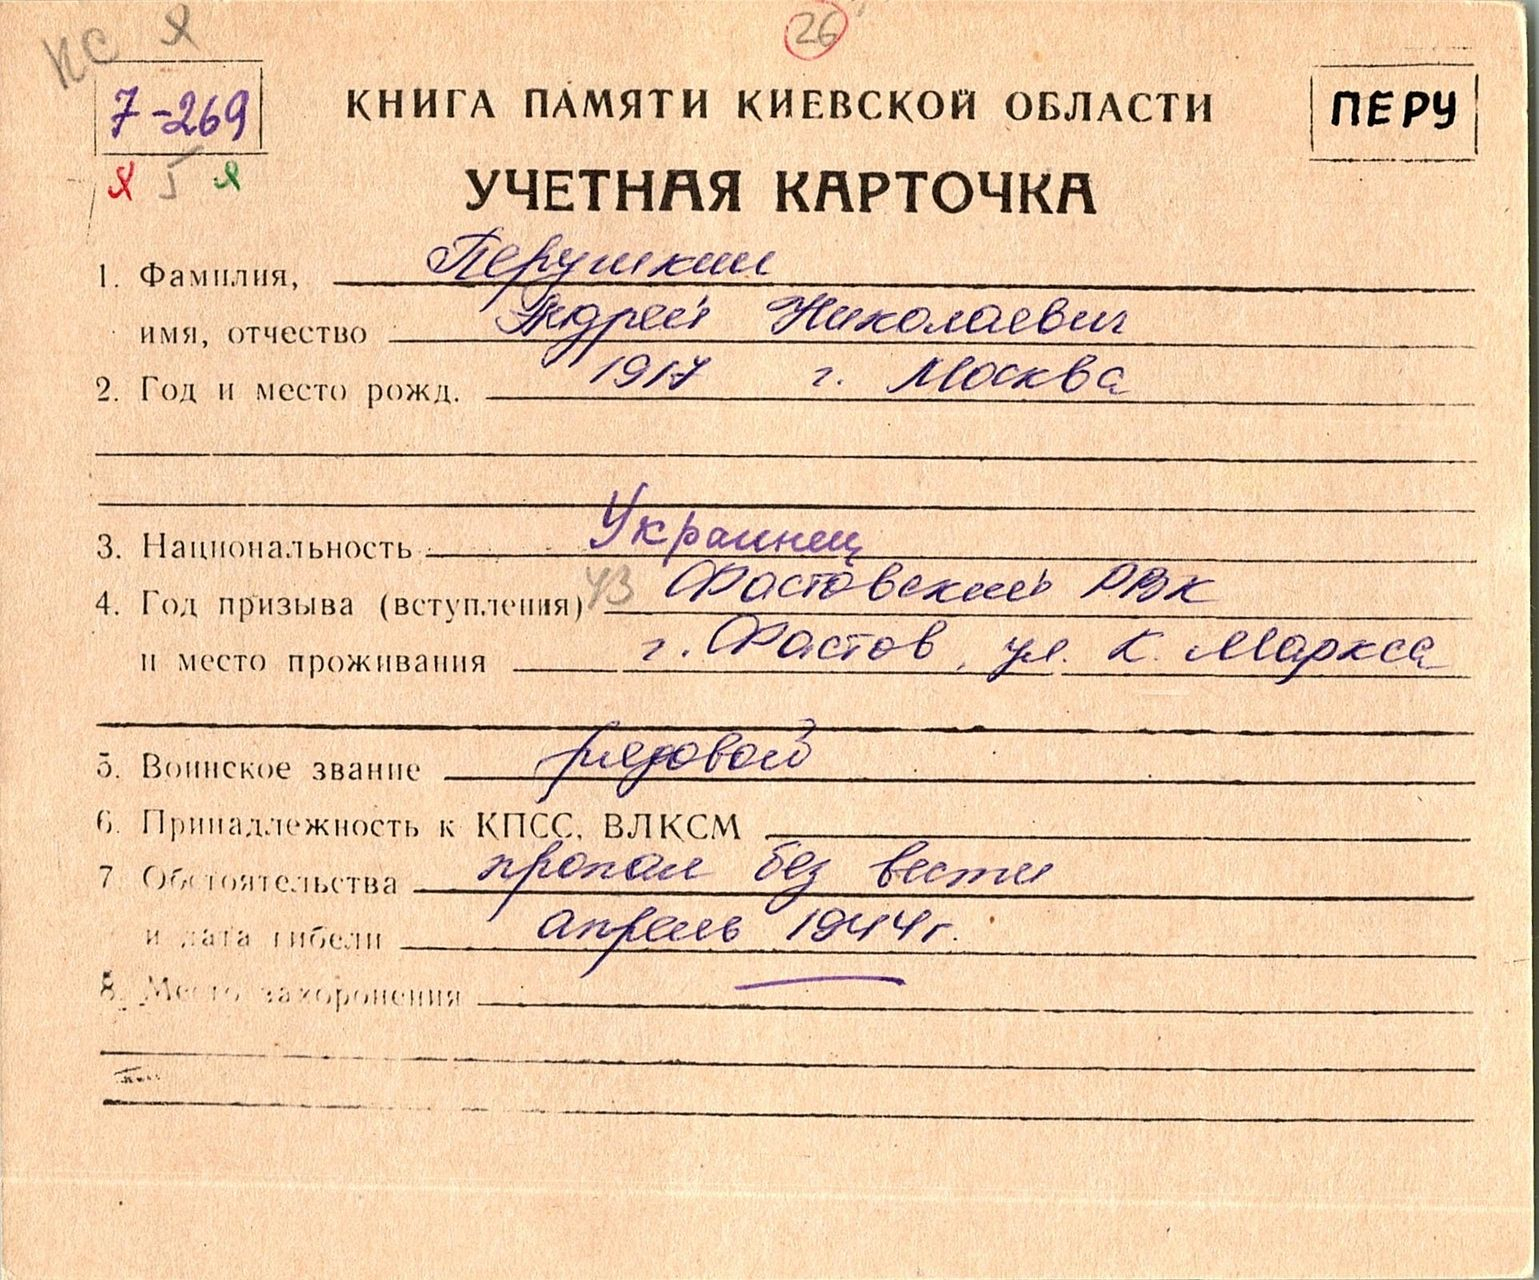 КС Я
26
7-269
КНИГА ПАМЯТИ КИЕВСКОЙ ОБЛАСТИ
ПЕРУ
Я Я
УЧЕТНАЯ КАРТОЧКА
1. Фамилия, Перушкин
имя, отчество Андрей Николаевич
2. Год и место рожд. 1917 г. Москва
3. Национальность Украинец
4. Год призыва (вступления) 43 Фастовский РВК
и место проживания г. Фастов, ул. К. Маркса
5. Воинское звание рядовой
6. Принадлежность к КПСС, ВЛКСМ
7. Обстоятельства пропал без вести
и дата гибели апрель 1944 г.
8. Место захоронения